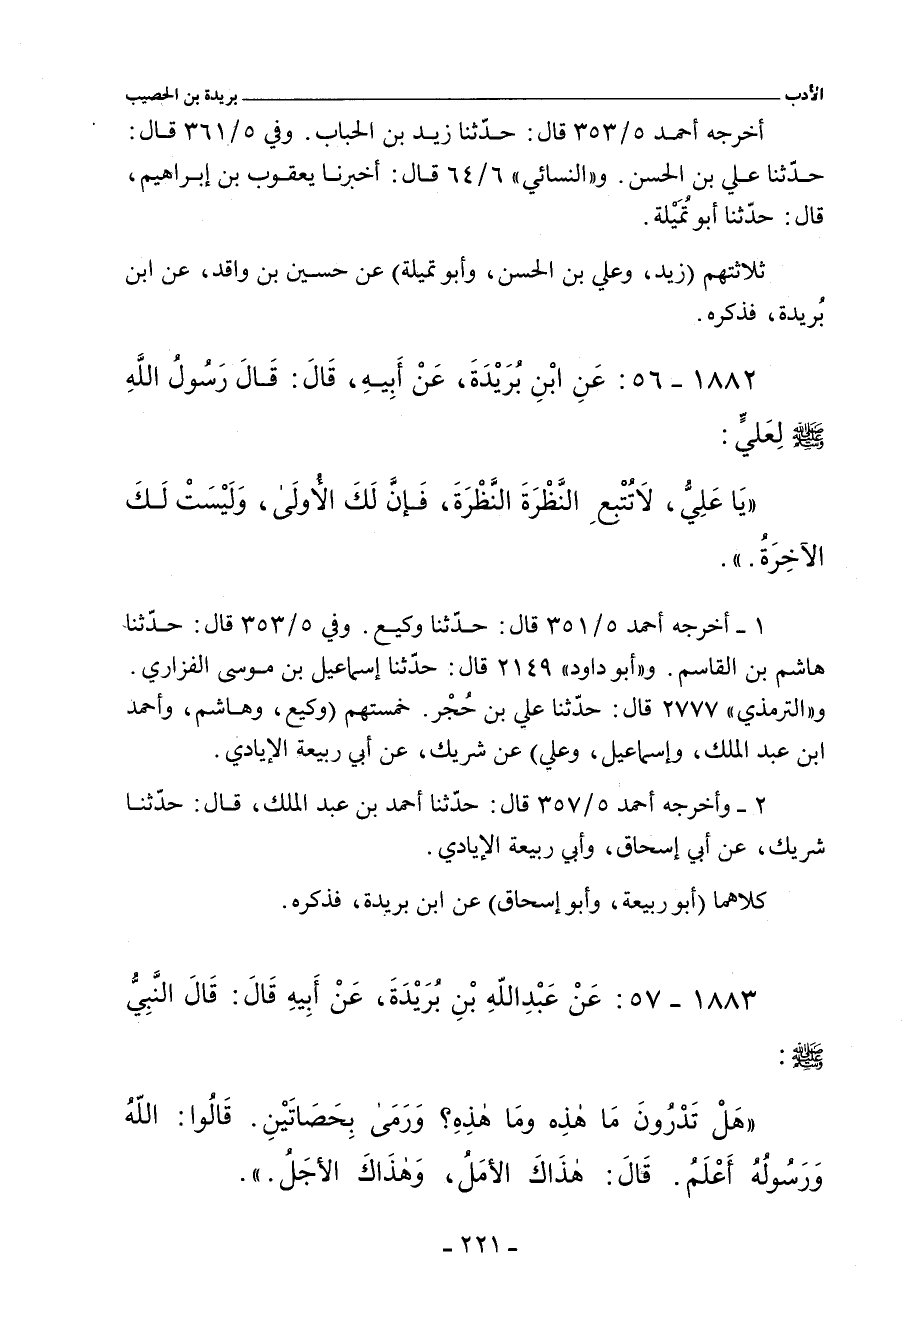 الأدب ـــــــــ بريدة بن الحصيب
أخرجه أحمد ٣٥٣/٥ قال: حدّثنا زيد بن الحباب. وفي ٣٦١/٥ قال:
حدّثنا علي بن الحسن. و«النسائي» ٦٤/٦ قال: أخبرنا يعقوب بن إبراهيم،
قال: حدّثنا أبو تُمَيْلة.
ثلاثتهم (زيد، وعلي بن الحسن، وأبو تميلة) عن حسين بن واقد، عن ابن
بُريدة، فذكره.
١٨٨٢ - ٥٦: عَنِ ابْنِ بُرَيْدَةَ، عَنْ أَبِيهِ، قَالَ: قَالَ رَسُولُ اللَّهِ
ﷺ لِعَلِيٍّ:
«يَا عَلِيُّ، لَاتُتْبِعِ النَّظْرَةَ النَّظْرَةَ، فَإِنَّ لَكَ الأُولَىٰ، وَلَيْسَتْ لَكَ
الآخِرَةُ.».
١ - أخرجه أحمد ٣٥١/٥ قال: حدّثنا وكيع. وفي ٣٥٣/٥ قال: حدّثنا
هاشم بن القاسم. و«أبو داود» ٢١٤٩ قال: حدّثنا إسماعيل بن موسى الفزاري.
و«الترمذي» ٢٧٧٧ قال: حدّثنا علي بن حُجْر. خمستهم (وكيع، وهاشم، وأحمد
ابن عبد الملك، وإسماعيل، وعلي) عن شريك، عن أبي ربيعة الإيادي.
٢ - وأخرجه أحمد ٣٥٧/٥ قال: حدّثنا أحمد بن عبد الملك، قال: حدّثنا
شريك، عن أبي إسحاق، وأبي ربيعة الإيادي.
كلاهما (أبو ربيعة، وأبو إسحاق) عن ابن بريدة، فذكره.
١٨٨٣ - ٥٧: عَنْ عَبْدِاللّهِ بْنِ بُرَيْدَةَ، عَنْ أَبِيهِ قَالَ: قَالَ النَّبِيُّ
ﷺ:
«هَلْ تَدْرُونَ مَا هٰذِه ومَا هٰذِهِ؟ وَرَمَىٰ بِحَصَاتَيْنِ. قَالُوا: اللّهُ
وَرَسُولُهُ أَعْلَمُ. قَالَ: هٰذَاكَ الأمَلُ، وَهٰذَاكَ الأجَلُ.».
- ٢٢١ -